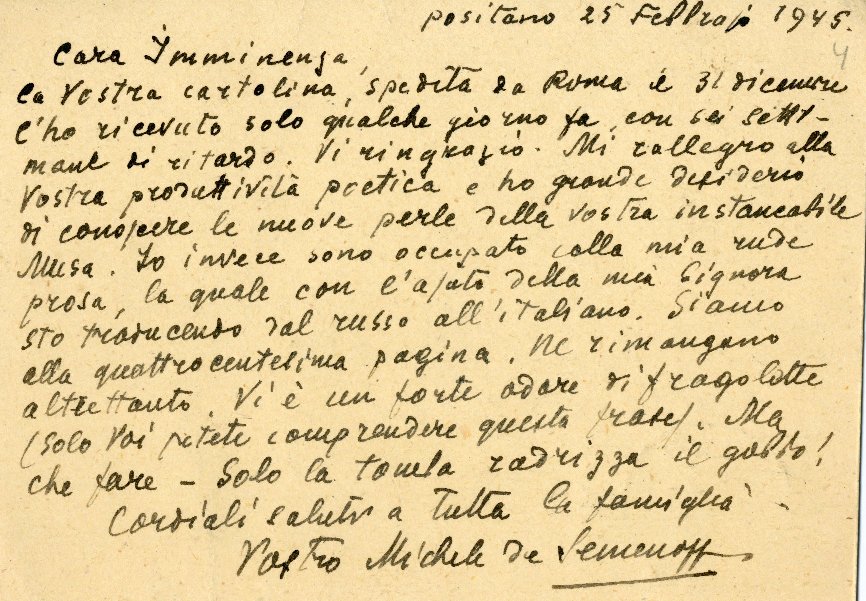 Positano 25 Febbrajo 1945.
4
Cara Imminenza,
La Vostra cartolina, spedita da Roma il 31 dicembre
l'ho ricevuto solo qualche giorno fa, con sei setti-
mane di ritardo. Vi ringrazio. Mi rallegro alla
Vostra produttività poetica e ho grande desiderio
di conoscere le nuove perle della vostra instancabile
Musa. Io invece sono occupato colla mia rude
prosa, la quale con l'ajuto della mia Signora
sto traducendo dal russo all'italiano. Siamo
alla quattrocentesima pagina. Ne rimangono
altrettanto. Vi è un forte odore di fragolette
(solo Voi potete comprendere questa frase). Ma
che fare – Solo la tomba radrizza il gobbo!
Cordiali saluti a tutta la famiglia.
Vostro Michele de Semenoff